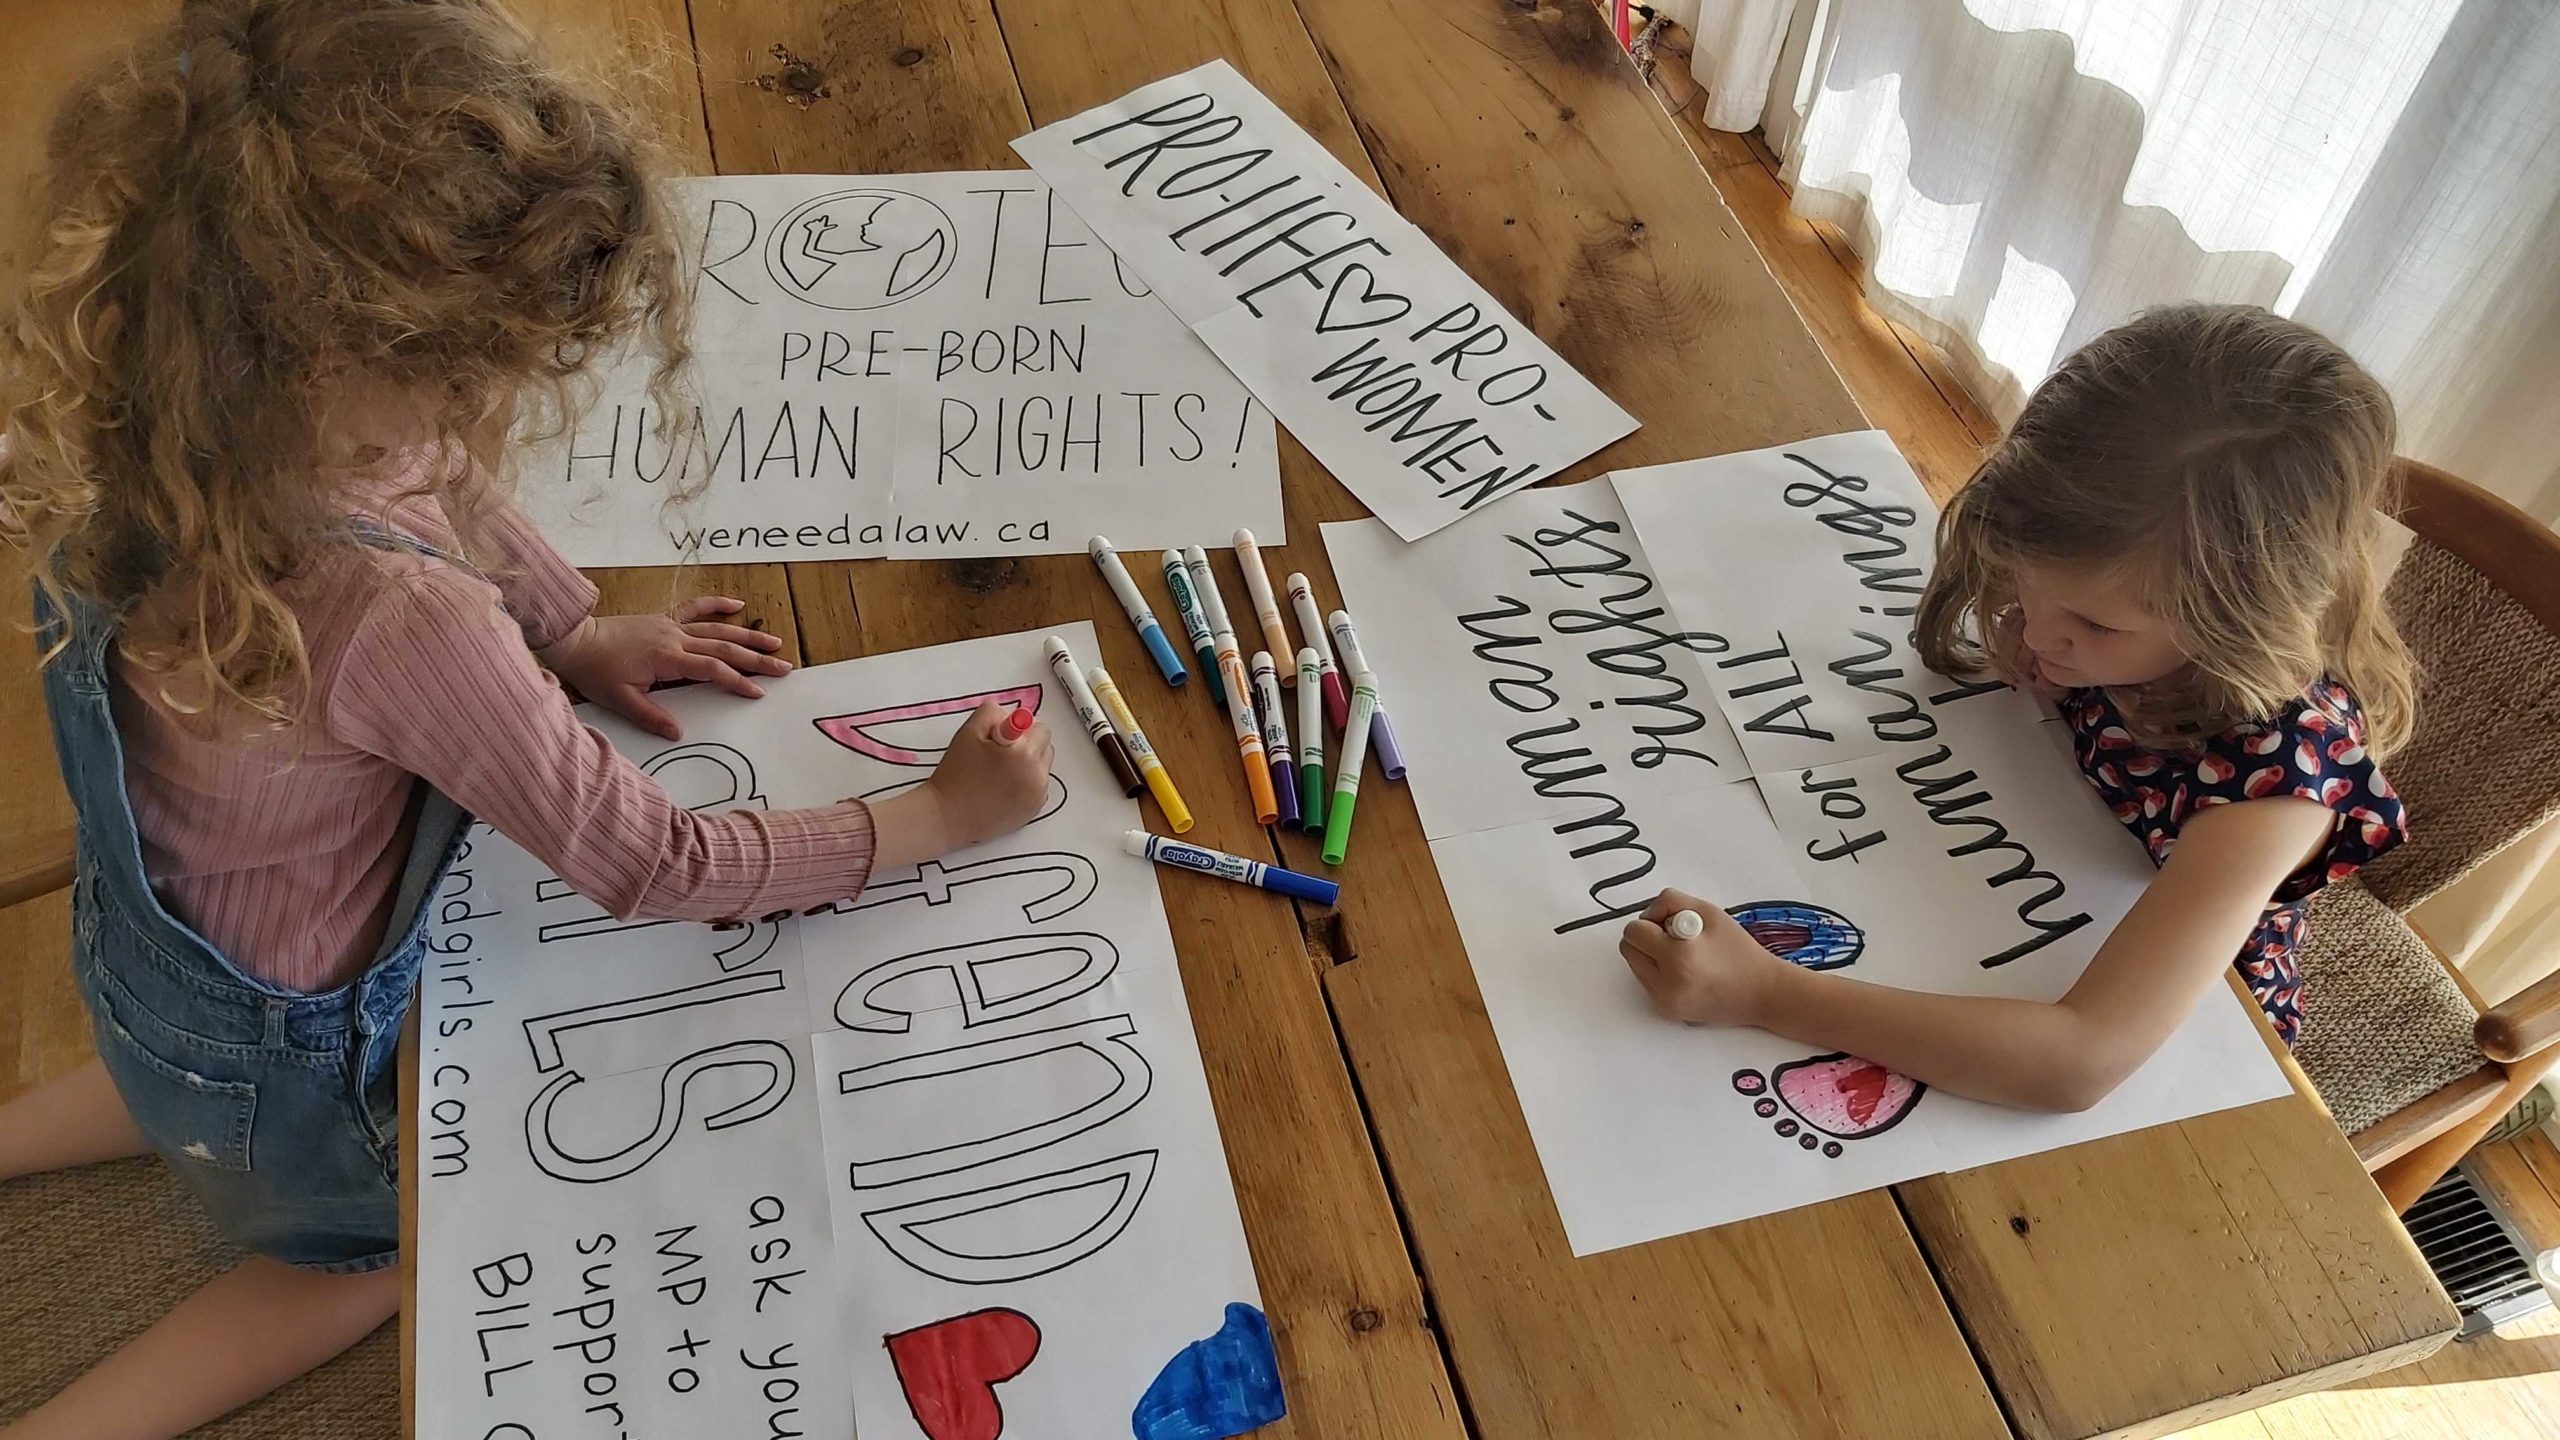 PROTEC
PRE-BORN
HUMAN RIGHTS!
weneedalaw.ca
PRO-LIFE ♡ PRO-
WOMEN
human
rights
for ALL
human beings
DefenD
girLS
ask you
MP to
support
BILL C
endgirls.com
Crayola